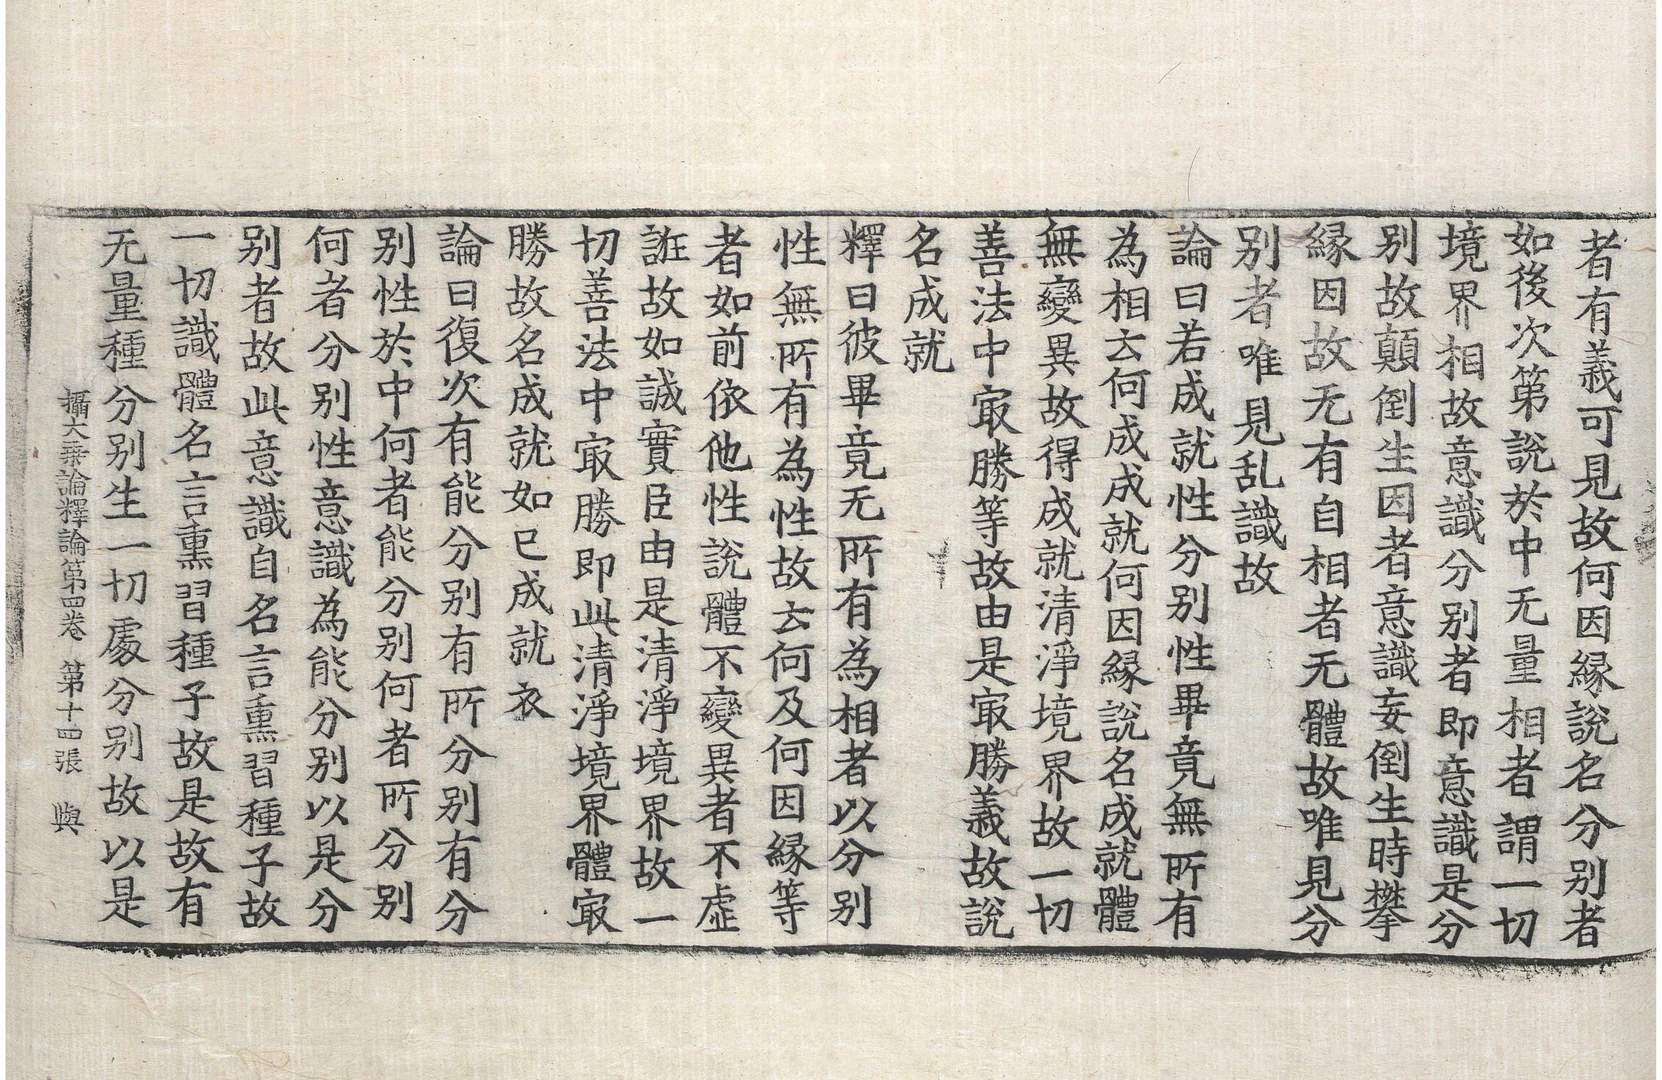 者有義可見故何因縁說名分别者
如後次第說於中无量相者謂一切
境界相故意識分别者即意識是分
别故顛倒生因者意識妄倒生時攀
縁因故无有自相者无體故唯見分
别者唯見乱識故
論曰若成就性分别性畢竟無所有
為相云何成成就何因縁說名成就體
無變異故得成就清淨境界故一切
善法中㝡勝等故由是㝡勝義故說
名成就
釋曰彼畢竟无所有為相者以分别
性無所有為性故云何及何因縁等
者如前依他性說體不變異者不虛
誑故如誠實臣由是清淨境界故一
切善法中㝡勝即此清淨境界體㝡
勝故名成就如已成就衣
論曰復次有能分别有所分别有分
别性於中何者能分别何者所分别
何者分别性意識為能分别以是分
别者故此意識自名言熏習種子故
一切識體名言熏習種子故是故有
无量種分别生一切處分别故以是
攝大乗論釋論第四卷 第十四張 與